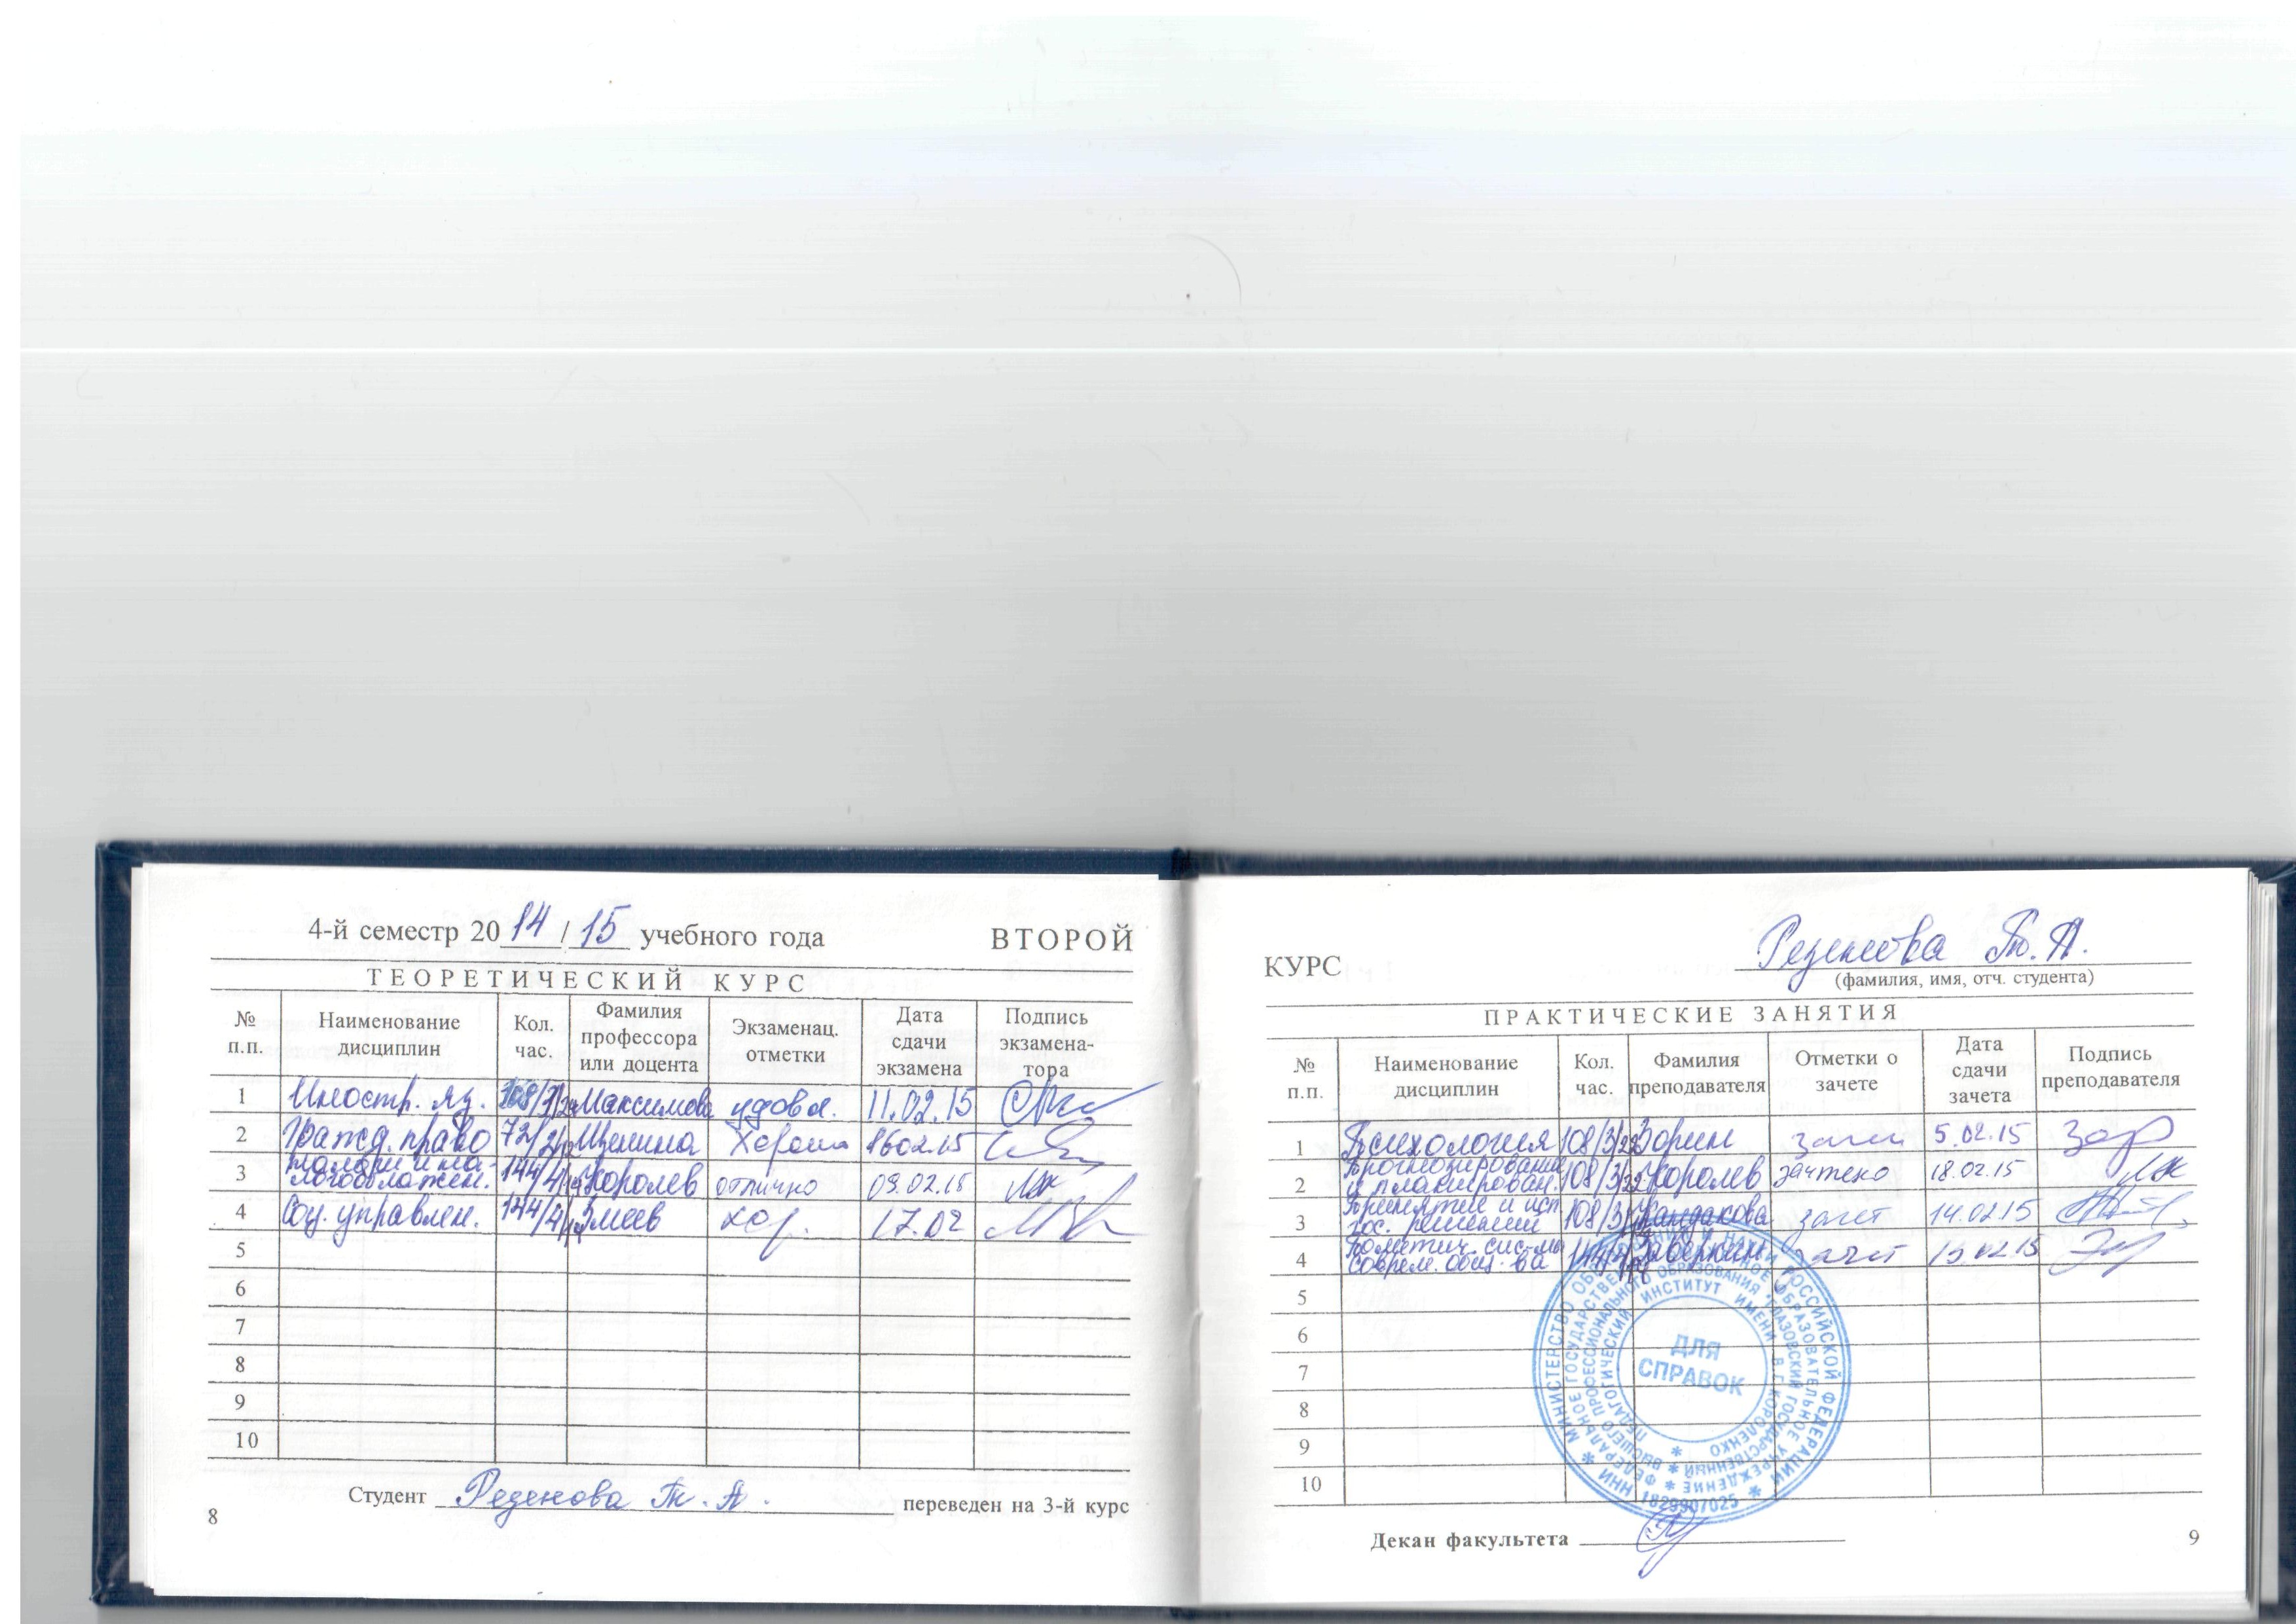 4-й семестр 2014/15 учебного года ВТОРОЙ
ТЕОРЕТИЧЕСКИЙ КУРС
№ п.п. Наименование дисциплин Кол. час. Фамилия профессора или доцента Экзаменац. отметки Дата сдачи экзамена Подпись экзамена- тора
1 Иностр. яз. Максимова удовл. 11.02.15
2 Гражд. право 72/2/ Хорошо 1602.15
3 Налоги и на- логообложен. 144/4/ Королев отлично 09.02.15
4 Соц. управлен. 144/4/ Змеев хор. 17.02
5
6
7
8
9
10
Студент Т. А. переведен на 3-й курс
8
КУРС Т. А.
(фамилия, имя, отч. студента)
ПРАКТИЧЕСКИЕ ЗАНЯТИЯ
№ п.п. Наименование дисциплин Кол. час. Фамилия преподавателя Отметки о зачете Дата сдачи зачета Подпись преподавателя
1 Психология 108/3/22 Зорин зачет 5.02.15 Зор
2 Прогнозирование и планирован. 108/3/22 Королев зачтено 18.02.15
3 Принятие и исп. гос. решений 108/3/ зачет 14.02.15
4 Политич. системы соврем. общ-ва 144/ Заверкин зачет
5
6
7
8
9
10
МИНИСТЕРСТВО ОБРАЗОВАНИЯ И НАУКИ РОССИЙСКОЙ ФЕДЕРАЦИИ * ИНН 1829907025 *
ФЕДЕРАЛЬНОЕ ГОСУДАРСТВЕННОЕ ОБРАЗОВАТЕЛЬНОЕ УЧРЕЖДЕНИЕ *
ВЫСШЕГО ПРОФЕССИОНАЛЬНОГО ОБРАЗОВАНИЯ "ГЛАЗОВСКИЙ ГОСУДАРСТВЕННЫЙ *
ПЕДАГОГИЧЕСКИЙ ИНСТИТУТ ИМЕНИ В.Г.КОРОЛЕНКО *
ДЛЯ
СПРАВОК
Декан факультета
9